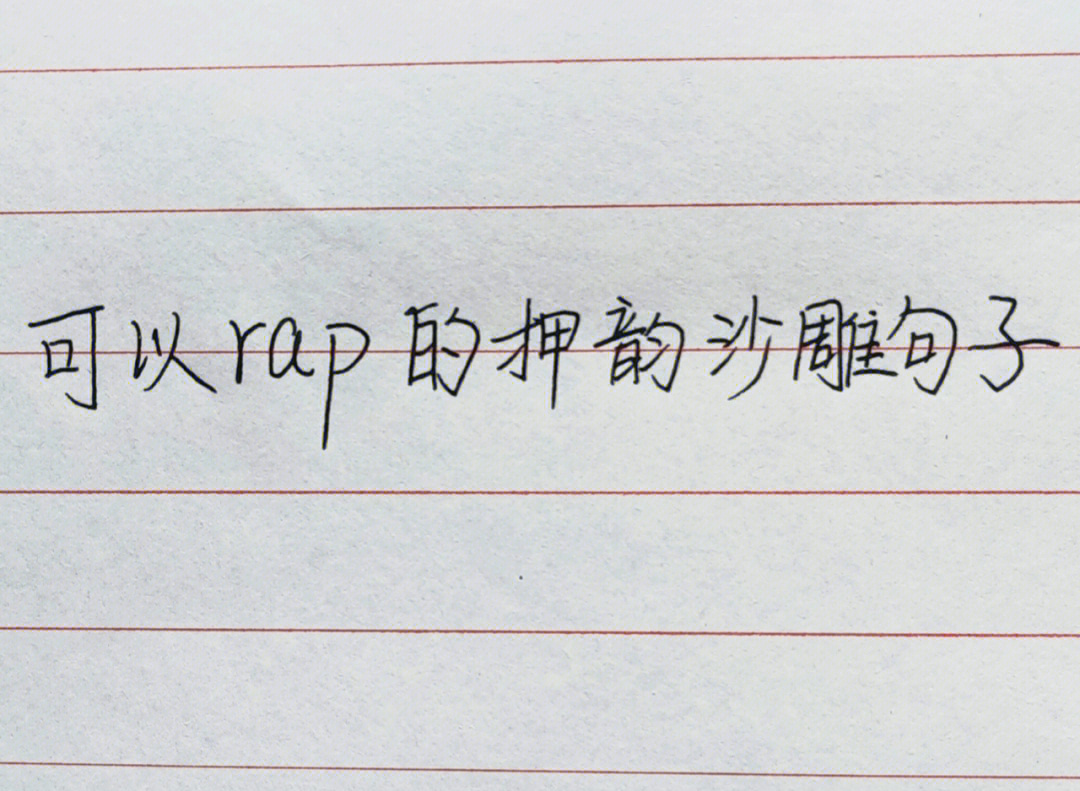 可以rap的押韵沙雕句子